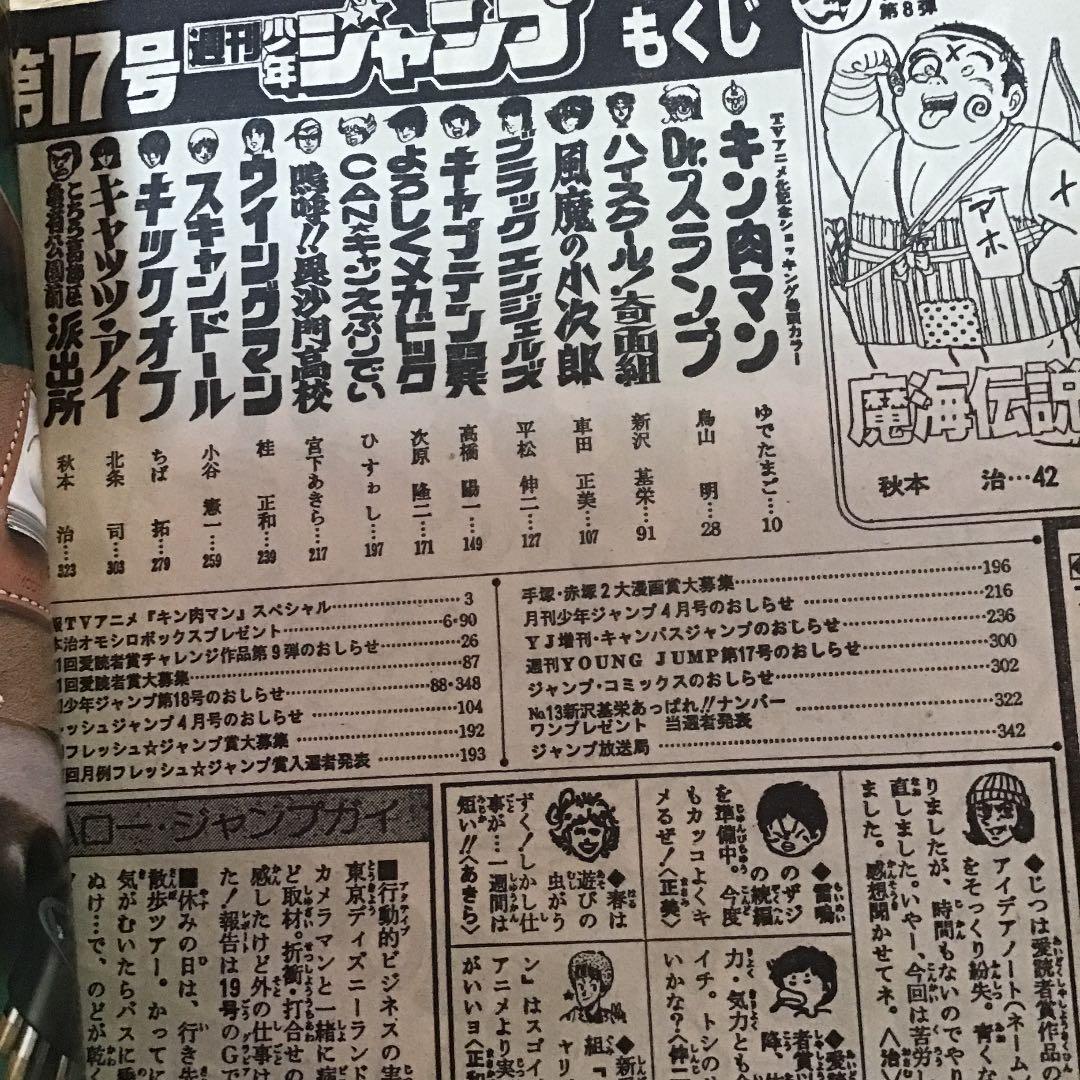 第17号 週刊少年ジャンプ もくじ
第8弾
アホ
魔海伝説
秋本 治…42
TVアニメ化記念ショッキング巻頭カラー
キン肉マン ゆでたまご…10
Dr.スランプ 鳥山 明…28
ハイスクール!奇面組 新沢 基栄…91
風魔の小次郎 車田 正美…107
ブラックエンジェルズ 平松 伸二…127
キャプテン翼 高橋 陽一…149
よろしくメカドック 次原 隆二…171
CAN★キャンえぶりでい ひすわし…197
嗚呼!!輿沙門高校 宮下あきら…217
ウイングマン 桂 正和…239
スキャンドール 小谷 憲一…259
キックオフ ちば 拓…279
キャッツ・アイ 北条 司…303
こちら葛飾区亀有公園前派出所 秋本 治…323
TVアニメ『キン肉マン』スペシャル…3
治オモシロボックスプレゼント…6・90
1回愛読者賞チャレンジ作品第9弾のおしらせ…26
1回愛読者賞大募集…87
少年ジャンプ第18号のおしらせ…88・348
ッシュジャンプ4月号のおしらせ…104
フレッシュ☆ジャンプ賞大募集…192
回月例フレッシュ☆ジャンプ賞入選者発表…193
手塚・赤塚2大漫画賞大募集…196
月刊少年ジャンプ4月号のおしらせ…216
YJ増刊・キャンバスジャンプのおしらせ…236
週刊YOUNG JUMP第17号のおしらせ…300
ジャンプ・コミックスのおしらせ…302
No.13新沢基栄あっぱれ!!ナンバーワンプレゼント 当選者発表…322
ジャンプ放送局…342
◆じつは愛読者賞作品の
アイデアノート(ネーム
をそっくり紛失。青くな
りましたが、時間もないのでや
直しました。いやー、今回は苦労
ました。感想聞かせてネ。〈治〉
◆雷鳴
のザジ
の続編
を準備中。今度
もカッコよくキ
メるぜ!〈正美〉
◆春は
遊びの
虫がう
ずく!しかし仕
事が…一週間は
短い!!〈あきら〉
◆愛
者賞
降、
力・気力とも
イチ。トシの
いかな?〈伸二
◆新
組『
ャリ
ン』はスゴイ
アニメより実
がいいヨ〈正和
ハロー・ジャンプガイ
■行動的ビジネスの実
東京ディズニーランド
カメラマンと一緒に病
ど取材。折衝・打合せの
感したけど外の仕事は
た!報告は19号のGで
■休みの日は、行き先
散歩ツアー。かってに
気がむいたらバスに乗
ぬけ…で、のどが乾く